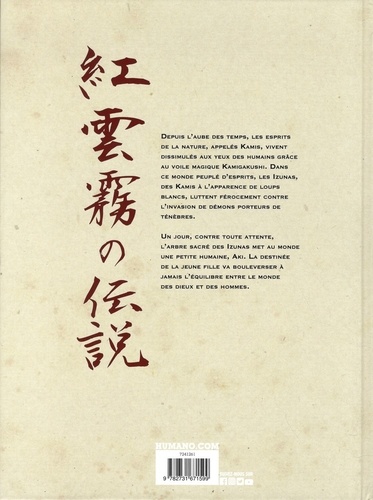 紅雲霧の伝説
Depuis l'aube des temps, les esprits
de la nature, appelés Kamis, vivent
dissimulés aux yeux des humains grâce
au voile magique Kamigakushi. Dans
ce monde peuplé d'esprits, les Izunas,
des Kamis à l'apparence de loups
blancs, luttent férocement contre
l'invasion de démons porteurs de
ténèbres.
Un jour, contre toute attente,
l'arbre sacré des Izunas met au monde
une petite humaine, Aki. La destinée
de la jeune fille va bouleverser à
jamais l'équilibre entre le monde
des dieux et des hommes.
HUMANO.COM
9 782731 671599